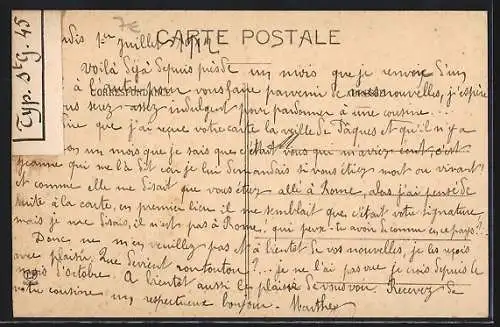 7€
Typ. St G. 45
CARTE POSTALE
1er Juillet
Voilà déjà depuis près de un mois que je renvoie d'un
à l'autre pour vous faire parvenir de mes nouvelles, j'espère
CORRESPONDANCE
serez assez indulgent pour pardonner à une cousine...
dire que j'ai reçue votre carte la veille de Pâques et qu'il n'y a
un mois que je sais que c'était vous qui m'aviez écrit, c'est
Jeanne qui me l'a dit car je lui demandais si vous étiez mort ou vivant?
et comme elle me disait que vous étiez allé à Rome, alors j'ai pensé de
suite à la carte, en premier lieu il me semblait que c'était votre signature
mais je me disais, il n'est pas à Rome, qui peut-tu avoir de comme en ce pays?!
Donc ne m'en veuillez pas et à bientôt de vos nouvelles, je les reçois
avec plaisir. Que devient ?... je ne l'ai pas vue je crois depuis le
mois d'octobre. A bientôt aussi le plaisir de vous voir. Recevez de
votre cousine un respectueux bonjour. Marthe